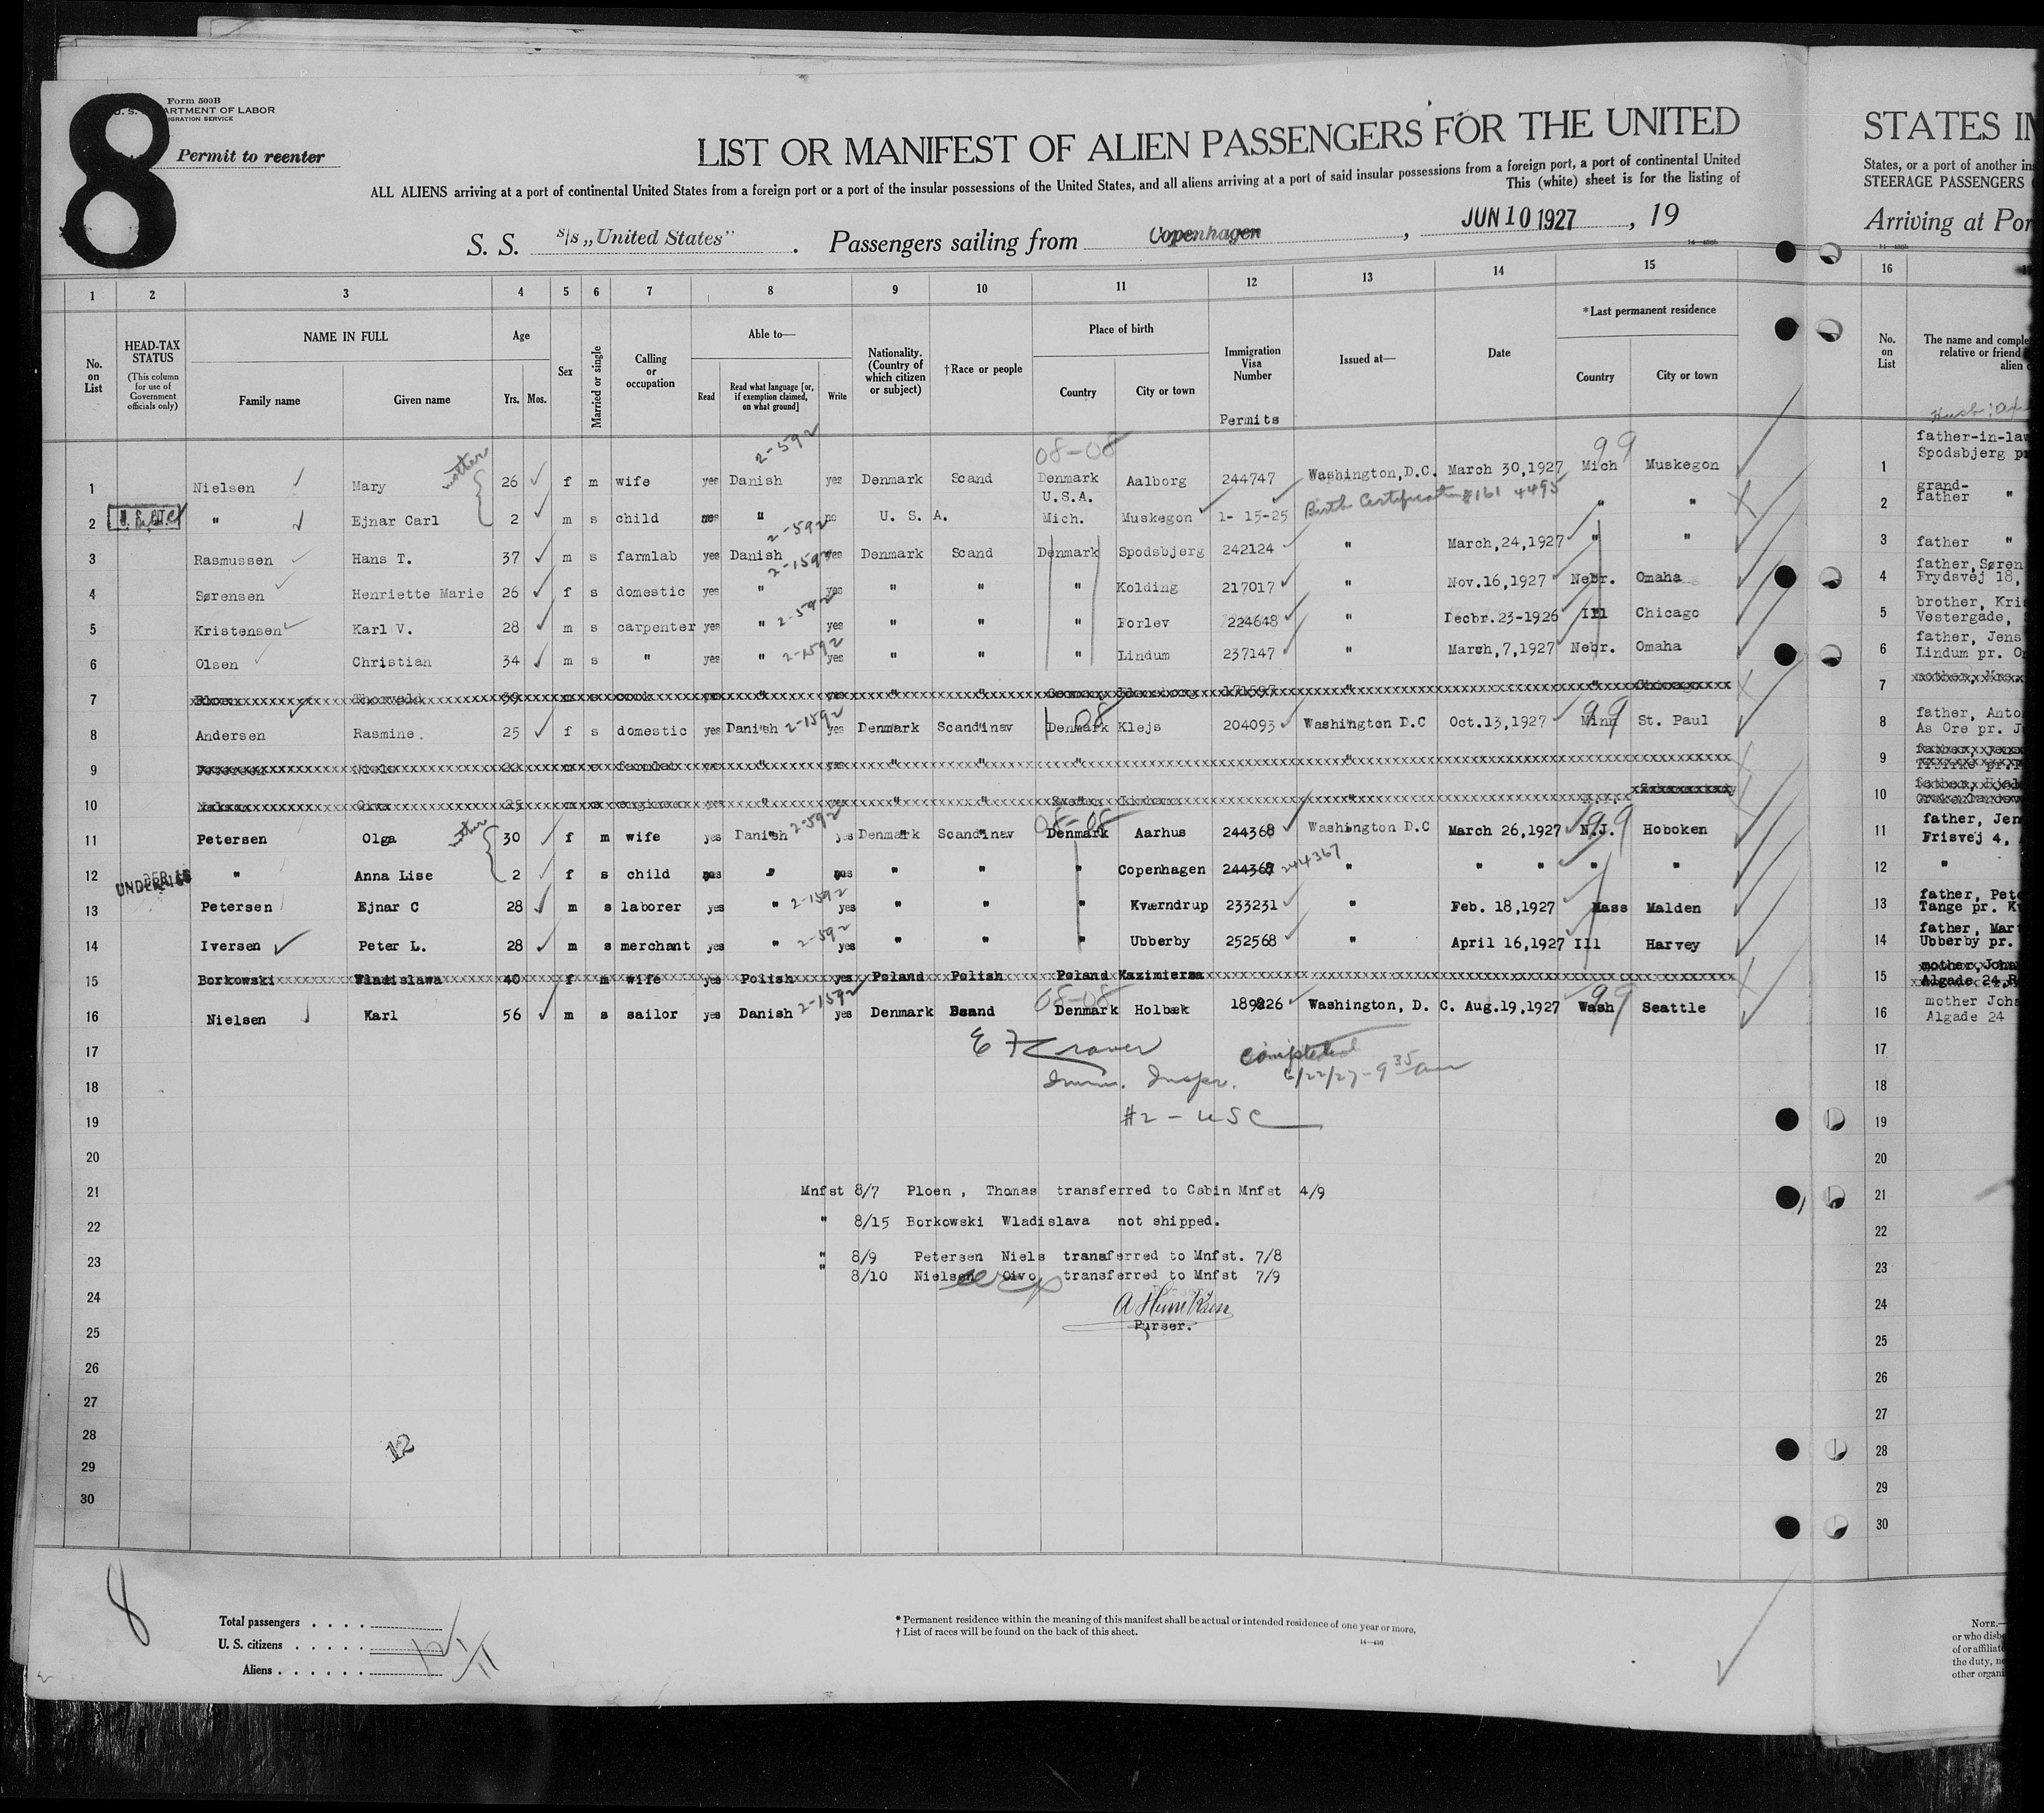 8
Form 500B
U. S. DEPARTMENT OF LABOR
IMMIGRATION SERVICE
Permit to reenter
LIST OR MANIFEST OF ALIEN PASSENGERS FOR THE UNITED
ALL ALIENS arriving at a port of continental United States from a foreign port or a port of the insular possessions of the United States, and all aliens arriving at a port of said insular possessions from a foreign port, a port of continental United
This (white) sheet is for the listing of
S. S. s/s „United States" . Passengers sailing from Copenhagen , JUN 10 1927 , 19
STATES IN
States, or a port of another ins
STEERAGE PASSENGERS
Arriving at Por
1 2 3 4 5 6 7 8 9 10 11 12 13 14 15 16
No. on List
HEAD-TAX STATUS
(This column for use of Government officials only)
NAME IN FULL
Family name Given name
Age
Yrs. Mos.
Sex
Married or single
Calling or occupation
Able to—
Read Read what language [or, if exemption claimed, on what ground] Write
Nationality. (Country of which citizen or subject)
†Race or people
Place of birth
Country City or town
Immigration Visa Number
Permits
Issued at—
Date
*Last permanent residence
Country City or town
No. on List
The name and comple
relative or friend
alien
2-592 08-08 99
1 Nielsen Mary mother 26 f m wife yes Danish yes Denmark Scand Denmark Aalborg 244747 Washington,D.C. March 30,1927 Mich Muskegon 1 father-in-law Spodsbjerg pr
2 U.S. " Ejnar Carl 2 m s child " no U. S. A. U.S.A. Mich. Muskegon 1- 15-25 Birth Certificate #161 4495 " " 2 grand-father "
3 Rasmussen Hans T. 37 m s farmlab yes Danish 2-592 yes Denmark Scand Denmark Spodsbjerg 242124 " March,24,1927 " " 3 father "
4 Sørensen Henriette Marie 26 f s domestic yes " 2-1592 yes " " " Kolding 217017 " Nov.16,1927 Nebr. Omaha 4 father,Søren Frydsvej 18,
5 Kristensen Karl V. 28 m s carpenter yes " 2-592 yes " " " Forlev 224648 " Decbr.23-1926 Ill Chicago 5 brother, Kri Vestergade,
6 Olsen Christian 34 m s " yes " 2-1592 yes " " " Lindum 237147 " March,7,1927 Nebr. Omaha 6 father, Jens Lindum pr. O
7 Thorvald 39 m s cook yes " yes " " Germany Flensborg 171597 " " Chicago 7 mother, Mrs.
8 Andersen Rasmine. 25 f s domestic yes Danish 2-1592 yes Denmark Scandinav Denmark 08 Klejs 204093 Washington D.C Oct.13,1927 99 Minn St. Paul 8 father, Anto As Ore pr. J
9 Petersen Niels m s farmlab " yes " " " " 9
10 m s engineer " yes " " " 10 father, Hjal
11 Petersen Olga mother 30 f m wife yes Danish 2-592 yes Denmark Scandinav 08-08 Denmark Aarhus 244368 Washington D.C March 26,1927 99 N.J. Hoboken 11 father, Jen Frisvej 4,
12 UNDER 16 " Anna Lise 2 f s child " " " " Copenhagen 244368 244367 " " " " " 12 "
13 Petersen Ejnar C 28 m s laborer yes " 2-1592 yes " " " Kværndrup 233231 " Feb. 18,1927 Mass Malden 13 father, Pete Tange pr. Kv
14 Iversen Peter L. 28 m s merchant yes " 2-592 yes " " " Ubberby 252568 " April 16,1927 Ill Harvey 14 father, Mar Ubberby pr.
15 Borkowski Wladislawa 40 f m wife yes Polish yes Poland Polish Poland Kazimierza 15 mother,Joha Algade 24,R
16 Nielsen Karl 56 m s sailor yes Danish 2-1592 yes Denmark Scand 08-08 Denmark Holbæk 189826 Washington, D. C. Aug.19,1927 99 Wash Seattle 16 mother Johs Algade 24
17 17
Completed
18 Imm. Inspr. 6/22/27 - 9 35 am 18
19 #2 - USC 19
20 20
21 Mnfst 8/7 Ploen , Thomas transferred to Cabin Mnfst 4/9 21
22 " 8/15 Borkowski Wladislava not shipped. 22
23 " 8/9 Petersen Niels transferred to Mnfst. 7/8 23
" 8/10 Nielsen Oivo transferred to Mnfst 7/9
24 24
25 Purser. 25
26 26
27 27
28 12 28
29 29
30 30
8
Total passengers . . . .
U. S. citizens . . . . .
Aliens . . . . . .
12 1/11
* Permanent residence within the meaning of this manifest shall be actual or intended residence of one year or more.
† List of races will be found on the back of this sheet.
14—430
NOTE.—
or who disb
of or affiliat
the duty, ne
other organi